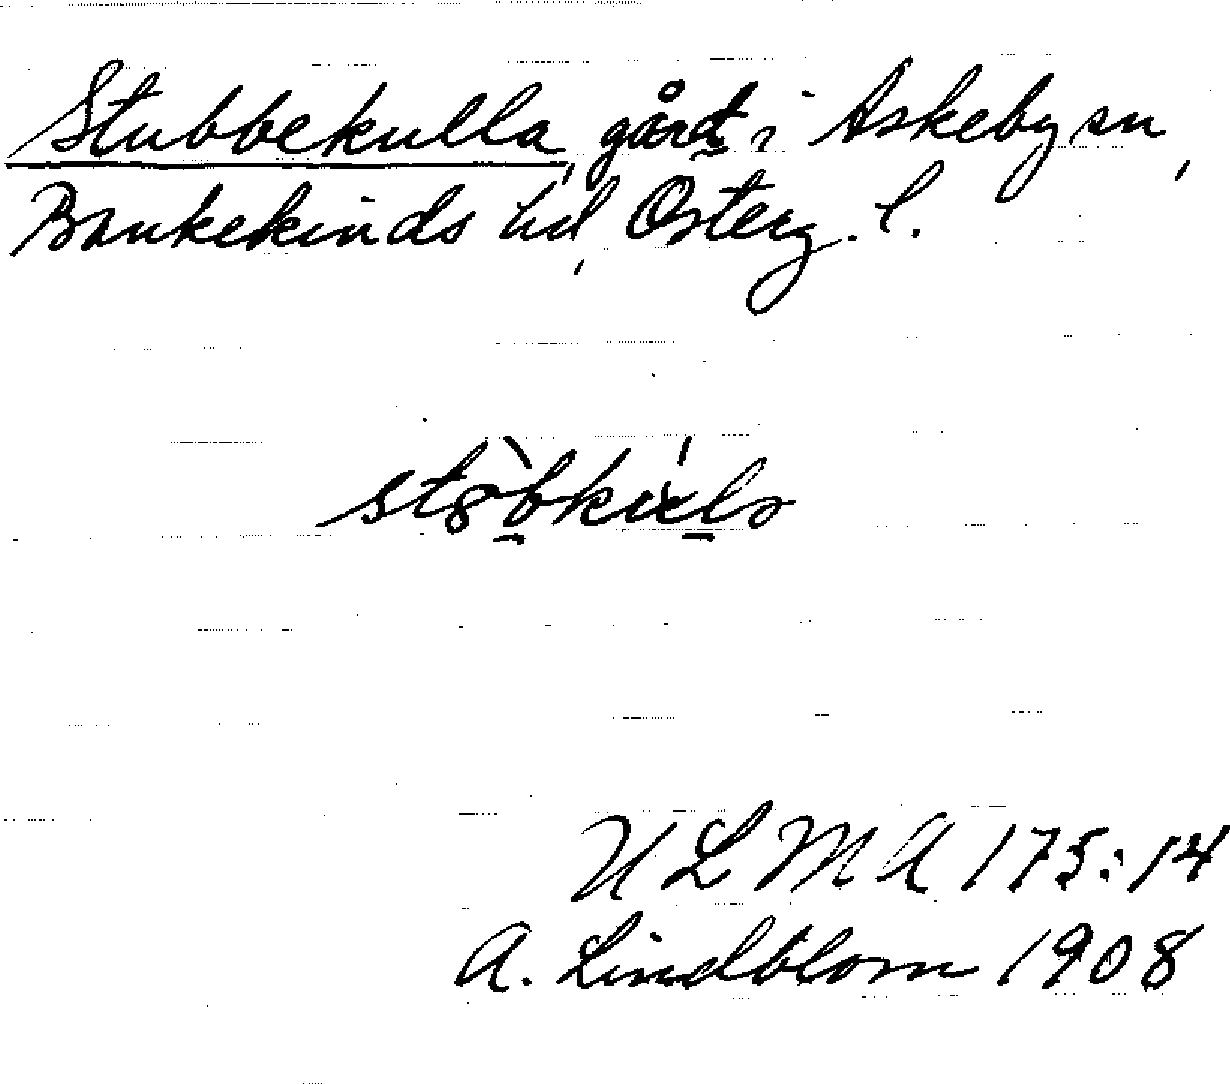 Stubbekulla, gård i Askeby sn,
Bankekinds hd, Österg. l.
U L M A 175:14
A. Lindblom 1908